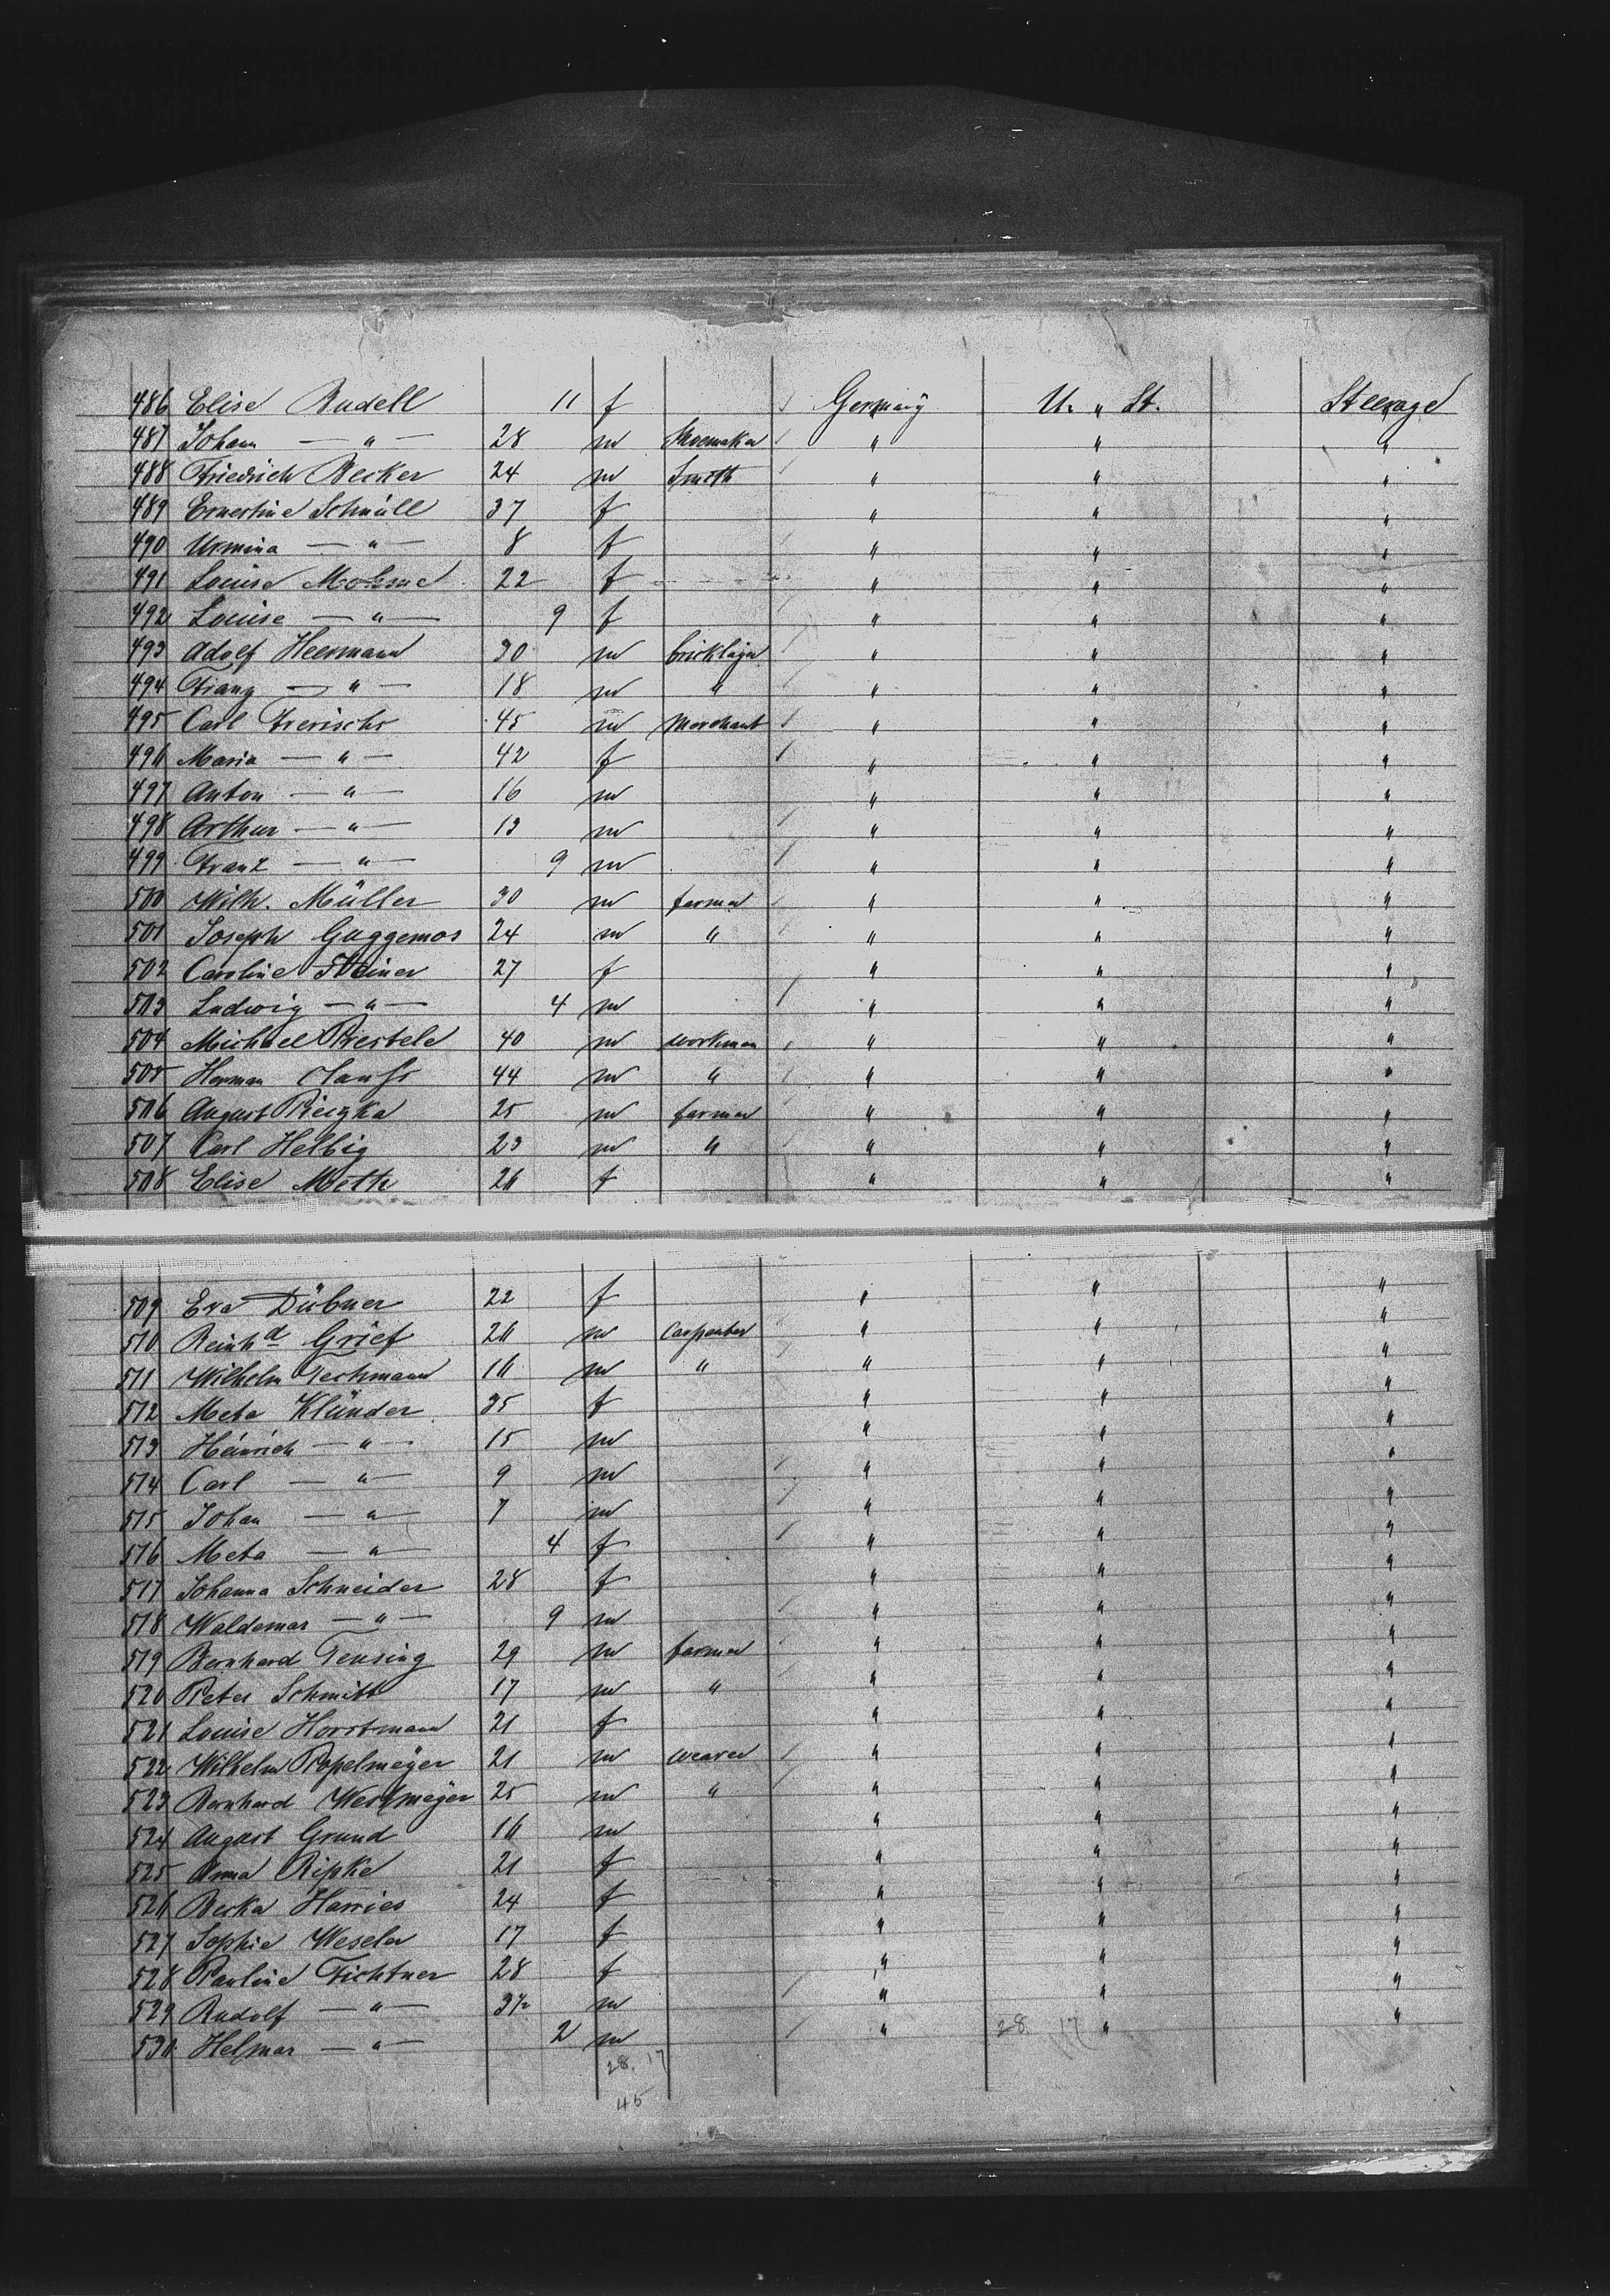 486 Elise Rudell 11 f Germany U. " St. Steerage
487 Johann — " — 28 m Shoemaker " " "
488 Friedrich Becker 24 m Smith " " "
489 Ernestine Schnüll 37 f " " "
490 Urmina — " — 8 f " " "
491 Louise Mohme 22 f " " "
492 Louise — " — 9 f " " "
493 Adolf Heermann 30 m bricklayer " " "
494 Franz — " — 18 m " " " "
495 Carl Frerichs 45 m Merchant " " "
496 Maria — " — 42 f " " "
497 Anton — " — 16 m " " "
498 Arthur — " — 13 m " " "
499 Franz — " — 9 m " " "
500 Wilh. Müller 30 m farmer " " "
501 Joseph Guggemos 24 m " " " "
502 Caroline Steiner 27 f " " "
503 Ludwig — " — 4 m " " "
504 Michael Prestele 40 m workman " " "
505 Herman 44 m " " " "
506 August Pieczka 25 m farmer " " "
507 Carl Helbig 23 m " " " "
508 Elise Meth 26 f " " "
509 Eva Dübner 22 f " " "
510 Reinhd Grief 26 m Carpenter " " "
511 Wilhelm Teschmann 16 m " " " "
512 Meta Klünder 35 f " " "
513 Heinrich — " — 15 m " " "
514 Carl — " — 9 m " " "
515 Johan — " — 7 m " " "
516 Meta — " — 4 f " " "
517 Johanna Schneider 28 f " " "
518 Waldemar — " — 9 m " " "
519 Bernhard Tensing 29 m farmer " " "
520 Peter Schmitt 17 m " " " "
521 Louise Horstmann 21 f " " "
522 Wilhelm Popelmeyer 21 m weaver " " "
523 Bernhard Westmeyer 25 m " " " "
524 August Grund 16 m " " "
525 Anna Ripke 21 f " " "
526 Becka Harries 24 f " " "
527 Sophie Weseler 17 f " " "
528 Pauline Fichtner 28 f " " "
529 Rudolf — " — 3½ m " " "
530 Helmar — " — 2 m " 28 17 " "
28. 17
45